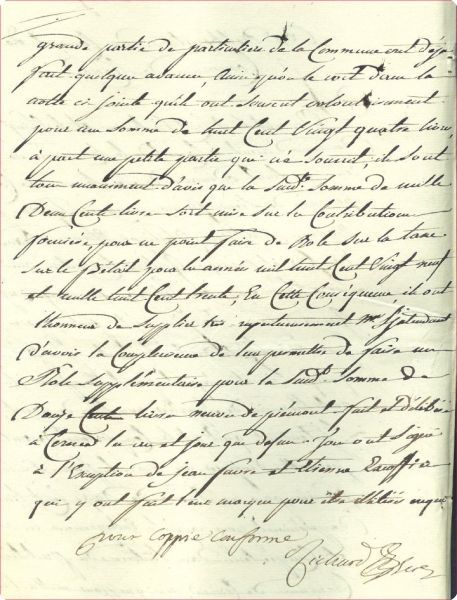 grande partie de particuliers de la Commune ont déja
fait quelque avance, ainsi qu'on le voit dans la
notte ci jointe qu'ils ont souscrit volontairement
pour une Somme de huit Cent Vingt quatre livres,
à part une petite partie qui n'a souscrit, ils sont
tous unanimement d'avis que la Sudte Somme de mille
Deux Cents livres soit mise sur la Contribution
foncière, pour ne point faire de Role sur la taxe
Sur le Bétail pour les années mil huit Cent Vingt neuf
et mille huit Cent trente, En Cette Conséquence, ils ont
l'honneur de Supplier très respectueusement Mr l'Intendant
d'avoir la Complaisance de leur permettre de faire un
Role Supplémentaire pour la Sudte Somme de
Douze Cents livres neuves de piémont fait et délibéré
à les an et jour que dessus. Tous ont Signé
à l'Exception de jean favre et Etienne
qui y ont fait leur marque pour être illitérés
pour coppie conforme
Richard